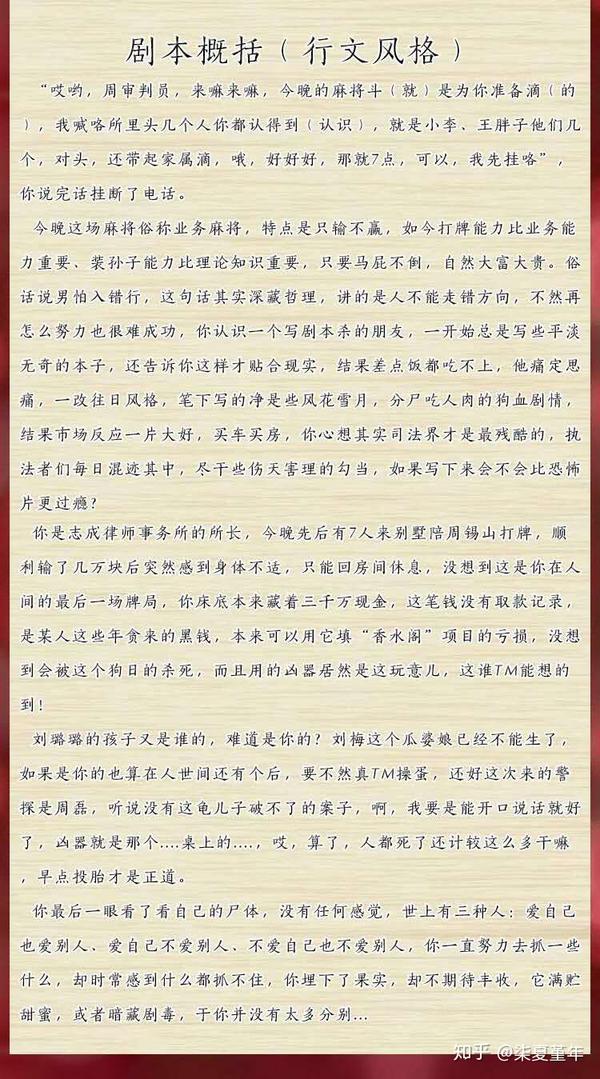 剧本概括（行文风格）
“哎哟，周审判员，来嘛来嘛，今晚的麻将斗（就）是为你准备滴（的
），我喊咯所里头几个人你都认得到（认识），就是小李、王胖子他们几
个，对头，还带起家属滴，哦，好好好，那就7点，可以，我先挂咯”，
你说完话挂断了电话。
今晚这场麻将俗称业务麻将，特点是只输不赢，如今打牌能力比业务能
力重要、装孙子能力比理论知识重要，只要马屁不倒，自然大富大贵。俗
话说男怕入错行，这句话其实深藏哲理，讲的是人不能走错方向，不然再
怎么努力也很难成功，你认识一个写剧本杀的朋友，一开始总是写些平淡
无奇的本子，还告诉你这样才贴合现实，结果差点饭都吃不上，他痛定思
痛，一改往日风格，笔下写的净是些风花雪月，分尸吃人肉的狗血剧情，
结果市场反应一片大好，买车买房，你心想其实司法界才是最残酷的，执
法者们每日混迹其中，尽干些伤天害理的勾当，如果写下来会不会比恐怖
片更过瘾？
你是志成律师事务所的所长，今晚先后有7人来别墅陪周锡山打牌，顺
利输了几万块后突然感到身体不适，只能回房间休息，没想到这是你在人
间的最后一场牌局，你床底本来藏着三千万现金，这笔钱没有取款记录，
是某人这些年贪来的黑钱，本来可以用它填“香水阁”项目的亏损，没想
到会被这个狗日的杀死，而且用的凶器居然是这玩意儿，这谁TM能想的
到！
刘璐璐的孩子又是谁的，难道是你的？刘梅这个瓜婆娘已经不能生了，
如果是你的也算在人世间还有个后，要不然真TM操蛋，还好这次来的警
探是周磊，听说没有这龟儿子破不了的案子，啊，我要是能开口说话就好
了，凶器就是那个....桌上的....，哎，算了，人都死了还计较这么多干嘛
，早点投胎才是正道。
你最后一眼看了看自己的尸体，没有任何感觉，世上有三种人：爱自己
也爱别人、爱自己不爱别人、不爱自己也不爱别人，你一直努力去抓一些
什么，却时常感到什么都抓不住，你埋下了果实，却不期待丰收，它满贮
甜蜜，或者暗藏剧毒，于你并没有太多分别...
知乎 @柒夏堇年